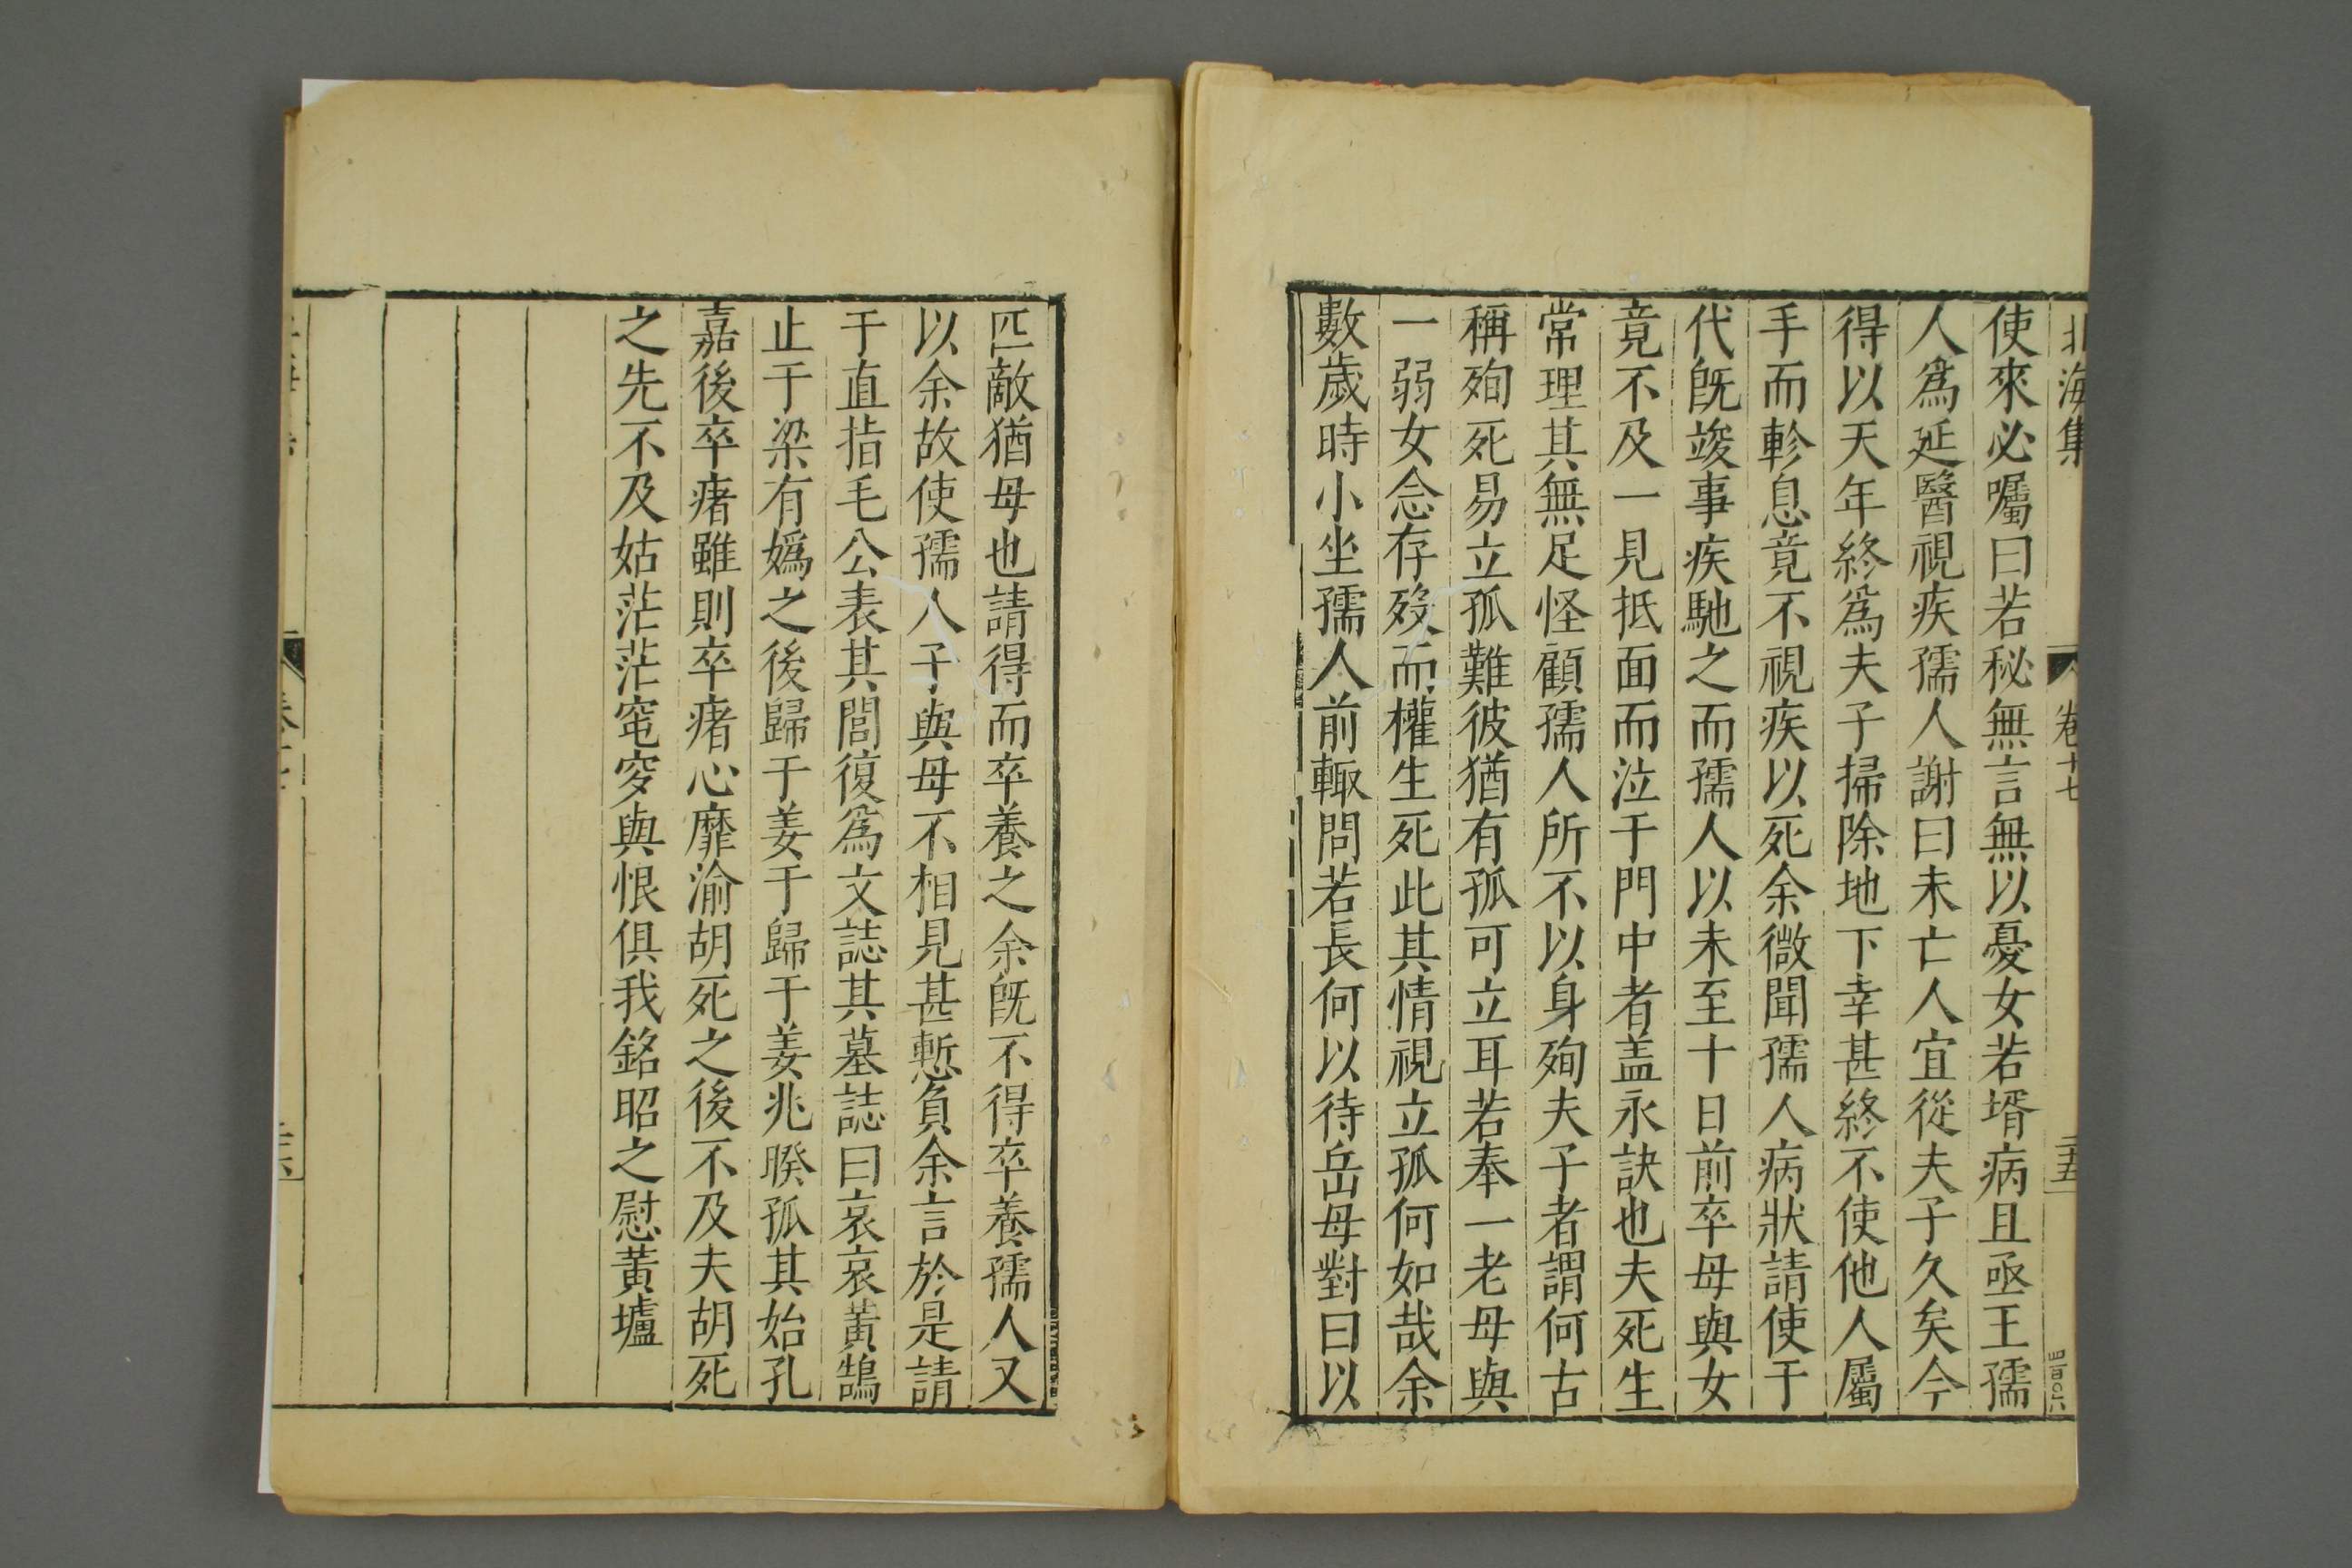 北海集 卷十七 二十五
使來必囑曰若秘無言無以憂女若壻病且亟王孺
人爲延醫視疾孺人謝曰未亡人宜從夫子久矣今
得以天年終爲夫子掃除地下幸甚終不使他人屬
手而軫息竟不視疾以死余微聞孺人病狀請使于
代旣竣事疾馳之而孺人以未至十日前卒母與女
竟不及一見抵面而泣于門中者盖永訣也夫死生
常理其無足怪顧孺人所不以身殉夫子者謂何古
稱殉死易立孤難彼猶有孤可立耳若奉一老母與
一弱女念存歿而權生死此其情視立孤何如哉余
數歲時小坐孺人前輙問若長何以待岳母對曰以
匹敵猶母也請得而卒養之余旣不得卒養孺人又
以余故使孺人子與母不相見甚慙負余言於是請
于直指毛公表其閭復爲文誌其墓誌曰哀哀黃鵠
止于梁有嬀之後歸于姜于歸于姜兆暌孤其始孔
嘉後卒瘏雖則卒瘏心靡渝胡死之後不及夫胡死
之先不及姑茫茫窀穸與恨俱我銘昭之慰黃壚